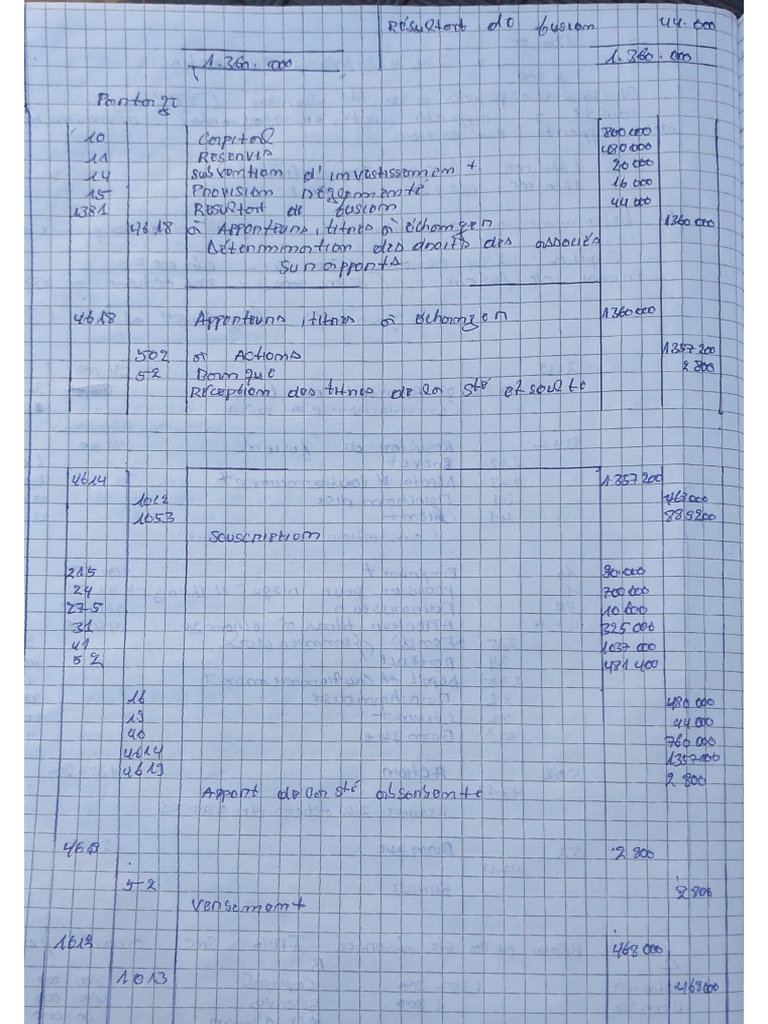 Résultat de fusion 44.000
1.360.000 1.360.000
Partage
10 Capital 800 000
11 Réserves 480 000
14 Subvention d'investissement 20 000
15 Provision réglementé 16 000
1381 Résultat de fusion 44 000
4618 à Apporteurs, titres à échanger 1360 000
Détermination des droits des associés
Sur apports
4618 Apporteurs, titres à échanger 1360 000
502 à Actions 1357 200
52 Banque 2 800
Réception des titres de la sté et soulte
4614 1 357 200
1012 468 000
1053 889200
Souscription
215 90.000
24 700 000
275 10 600
31 325 000
41 1037 000
52 481 400
16 480 000
19 44 000
40 760 000
4614 1357000
4619 2 800
Apport de la sté absorbente
4619 2 800
52 2 800
Versement
1012 468 000
1013 468000